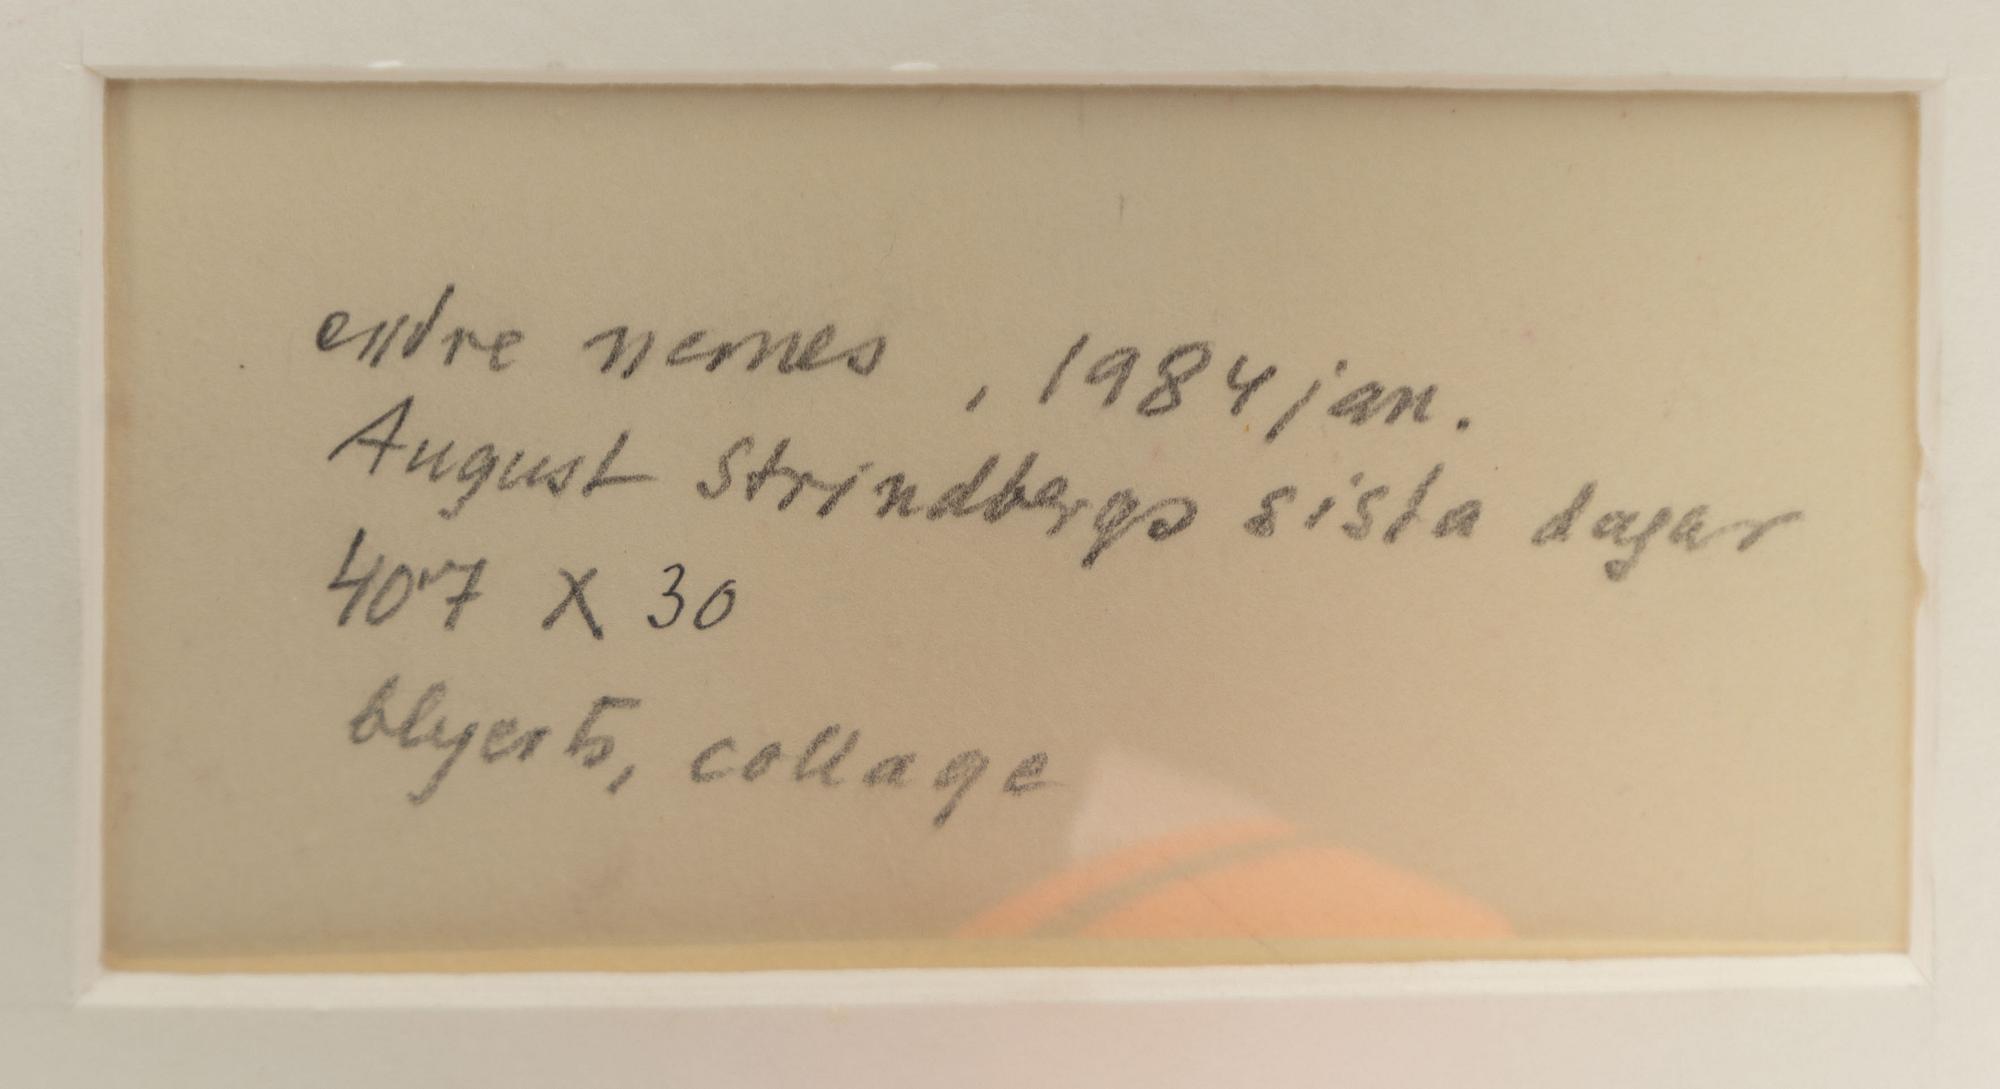 endre nemes, 1984 jan.
August Strindbergs sista dagar
40·7 X 30
blyerts, collage